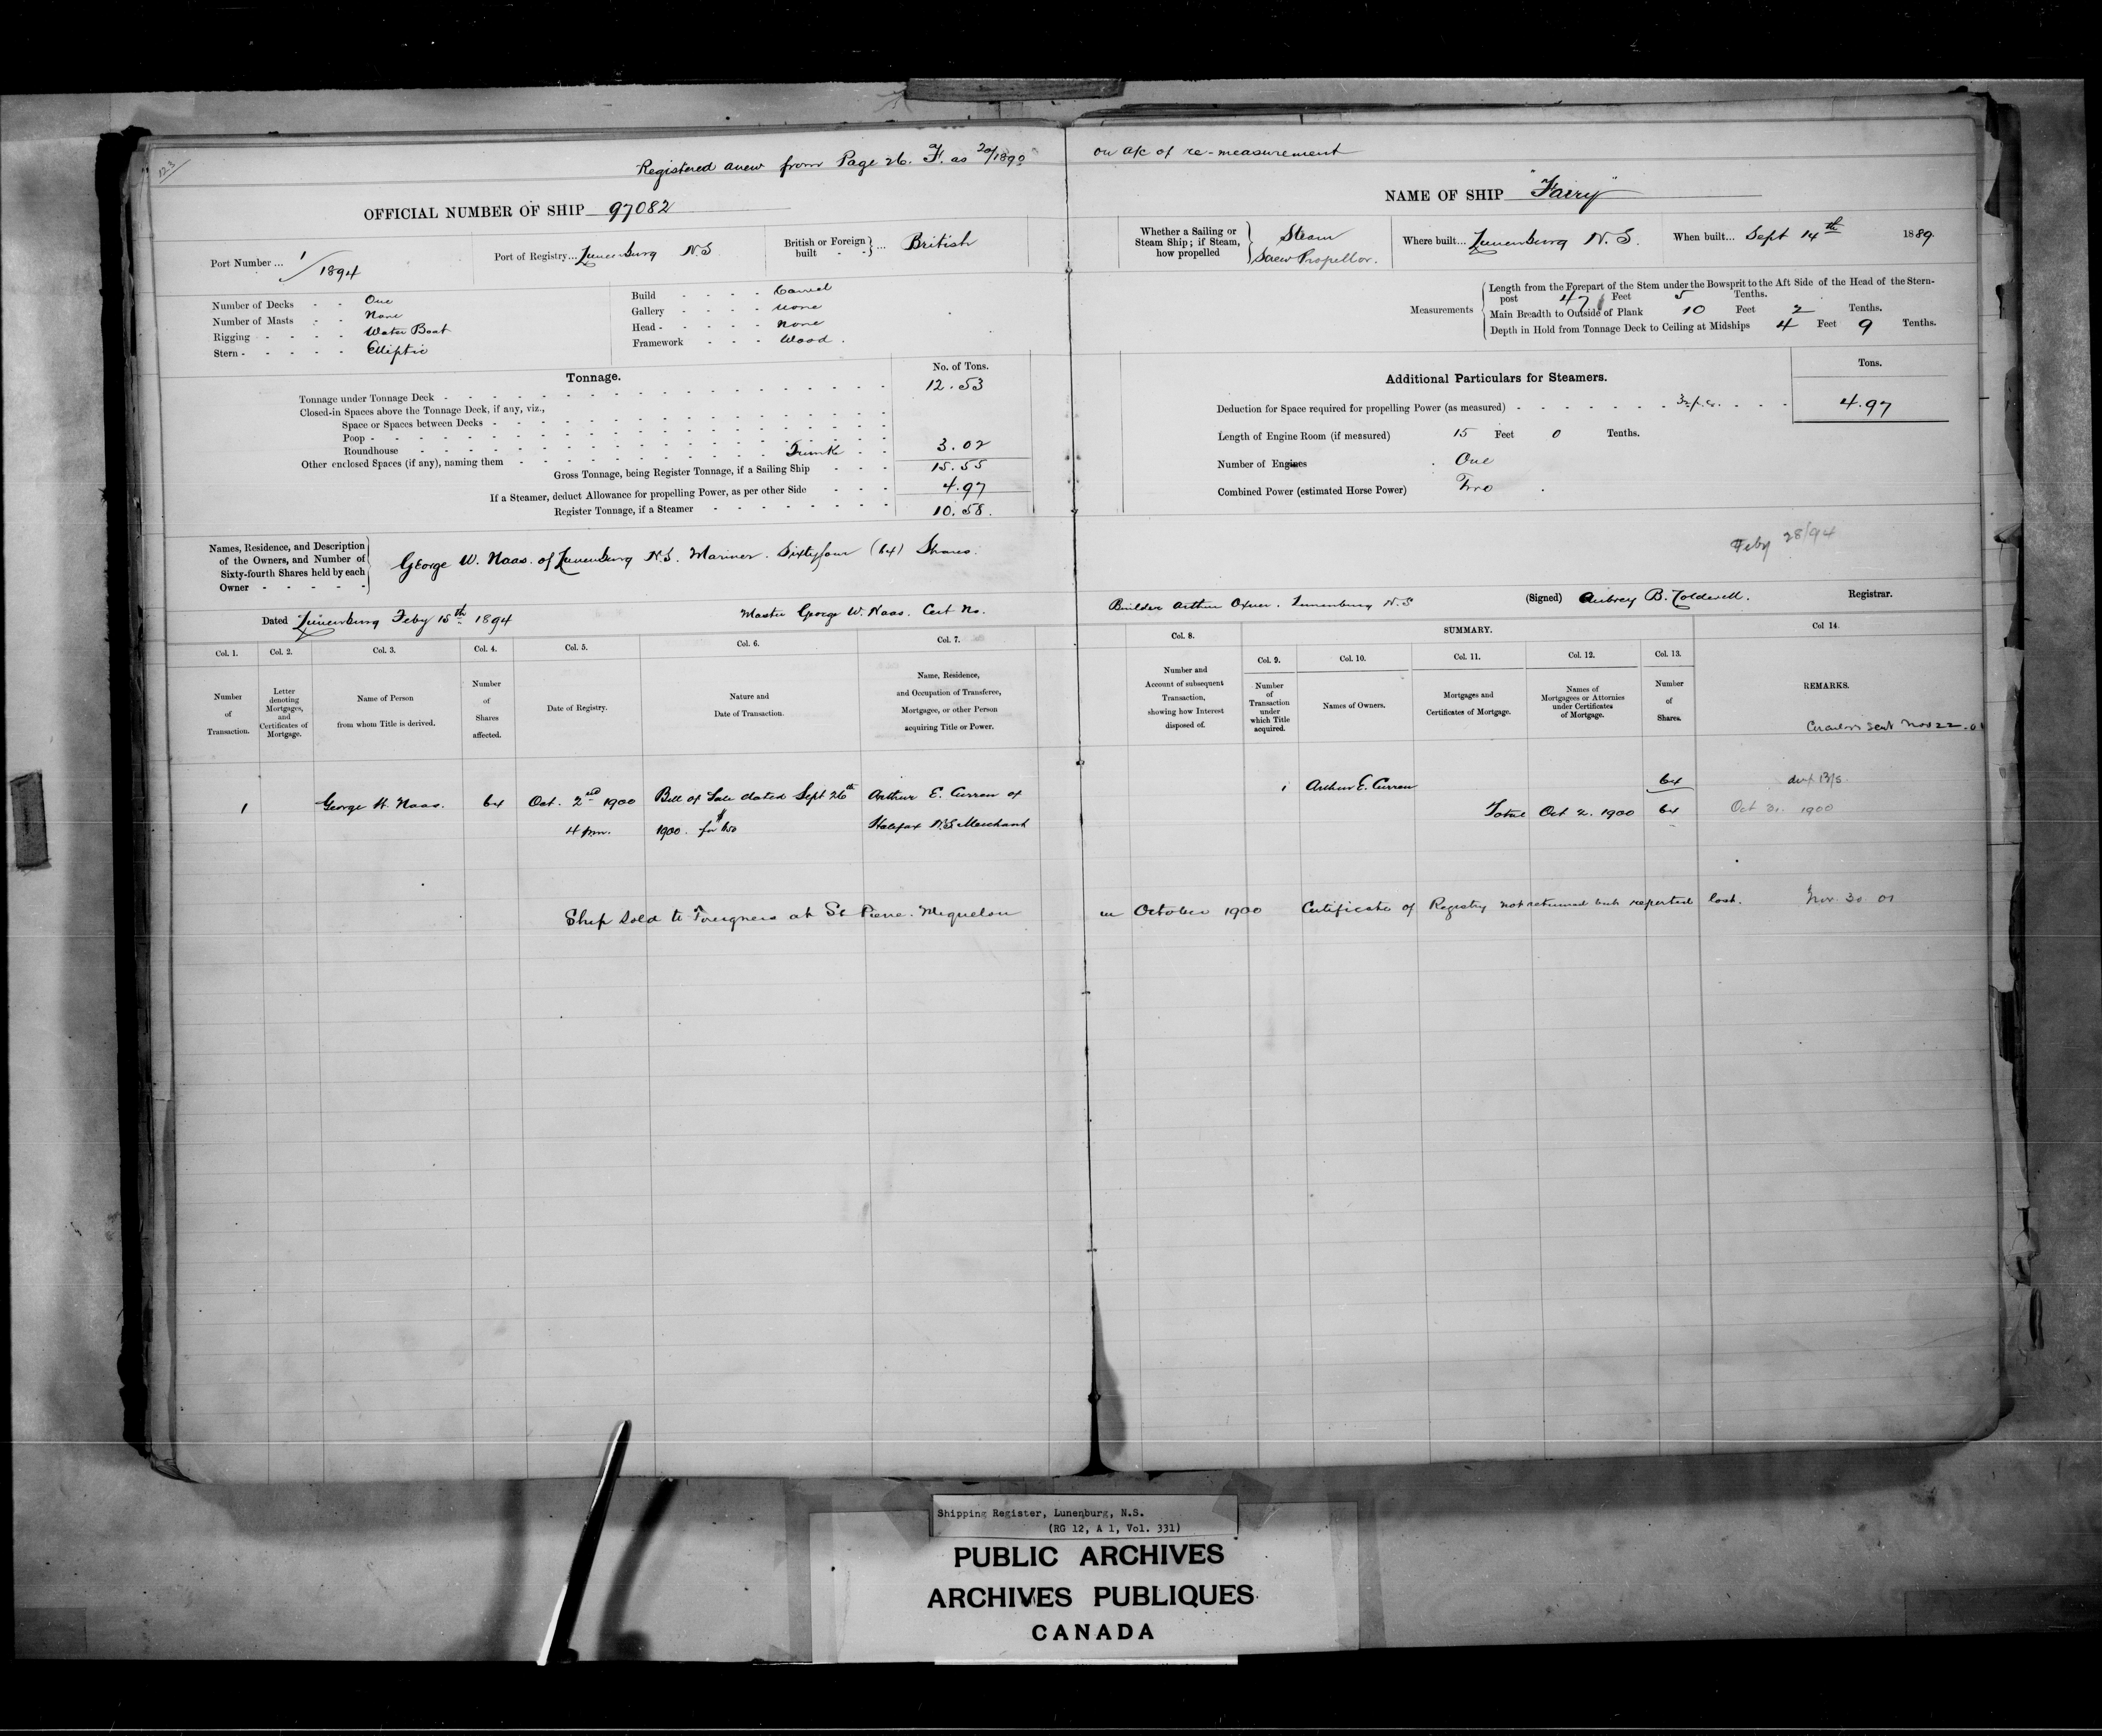 123
Registered anew from Page 26. F. as 20/1890 on a/c of re-measurement
OFFICIAL NUMBER OF SHIP 97082
NAME OF SHIP "Fairy"
Port Number ... 1/1894
Port of Registry... Lunenburg N.S
British or Foreign built ... British
Whether a Sailing or Steam Ship; if Steam, how propelled Steam Screw Propellor.
Where built... Lunenburg N.S.
When built... Sept 14th 1889.
Number of Decks - - One
Number of Masts - - None
Rigging - - - - Water Boat
Stern - - - - - Elliptic
Build - - - - Carvel
Gallery - - - - none
Head - - - - - none
Framework - - - Wood.
Measurements
Length from the Forepart of the Stem under the Bowsprit to the Aft Side of the Head of the Stern-
post 47 Feet 5 Tenths.
Main Breadth to Outside of Plank 10 Feet 2 Tenths.
Depth in Hold from Tonnage Deck to Ceiling at Midships 4 Feet 9 Tenths.
Tonnage.
No. of Tons.
Tonnage under Tonnage Deck 12.53
Closed-in Spaces above the Tonnage Deck, if any, viz.,
Space or Spaces between Decks
Poop
Roundhouse
Other enclosed Spaces (if any), naming them Trunk 3.02
Gross Tonnage, being Register Tonnage, if a Sailing Ship 15.55
If a Steamer, deduct Allowance for propelling Power, as per other Side 4.97
Register Tonnage, if a Steamer 10.58.
Additional Particulars for Steamers.
Tons.
Deduction for Space required for propelling Power (as measured) 4.97
Length of Engine Room (if measured) 15 Feet 0 Tenths.
Number of Engines One
Combined Power (estimated Horse Power) Two
Names, Residence, and Description
of the Owners, and Number of
Sixty-fourth Shares held by each
Owner
George W. Naas. of Lunenburg N.S. Mariner. Sixtyfour (64) Shares.
Feby 28/94
Dated Lunenburg Feby 15th 1894
Master George W. Naas. Cert No.
Builder Arthur Oxner. Lunenburg N.S
(Signed) Aubrey B. Coldwell. Registrar.
Col. 1.
Number of Transaction.
Col. 2.
Letter denoting Mortgages, and Certificates of Mortgage.
Col. 3.
Name of Person from whom Title is derived.
Col. 4.
Number of Shares affected.
Col. 5.
Date of Registry.
Col. 6.
Nature and Date of Transaction.
Col. 7.
Name, Residence, and Occupation of Transferee, Mortgagee, or other Person acquiring Title or Power.
Col. 8.
Number and Account of subsequent Transaction, showing how Interest disposed of.
SUMMARY.
Col. 9.
Number of Transaction under which Title acquired.
Col. 10.
Names of Owners.
Col. 11.
Mortgages and Certificates of Mortgage.
Col. 12.
Names of Mortgagees or Attornies under Certificates of Mortgage.
Col. 13.
Number of Shares.
Col 14.
REMARKS.
sent Nov 22
1 George W. Naas. 64 Oct. 2nd 1900 4 pm. Bill of Sale dated Sept 26th 1900. for $ Arthur E. Curren of Halifax N.S Merchant
1 Arthur E. Curren 64
Total Oct 2. 1900 64
Oct 31. 1900
Ship sold to Foreigners at St Pierre. Miquelon in October 1900 Certificate of Registry not returned but reported lost. Nov. 30 01
Shipping Register, Lunenburg, N.S.
(RG 12, A 1, Vol. 331)
PUBLIC ARCHIVES
ARCHIVES PUBLIQUES
CANADA